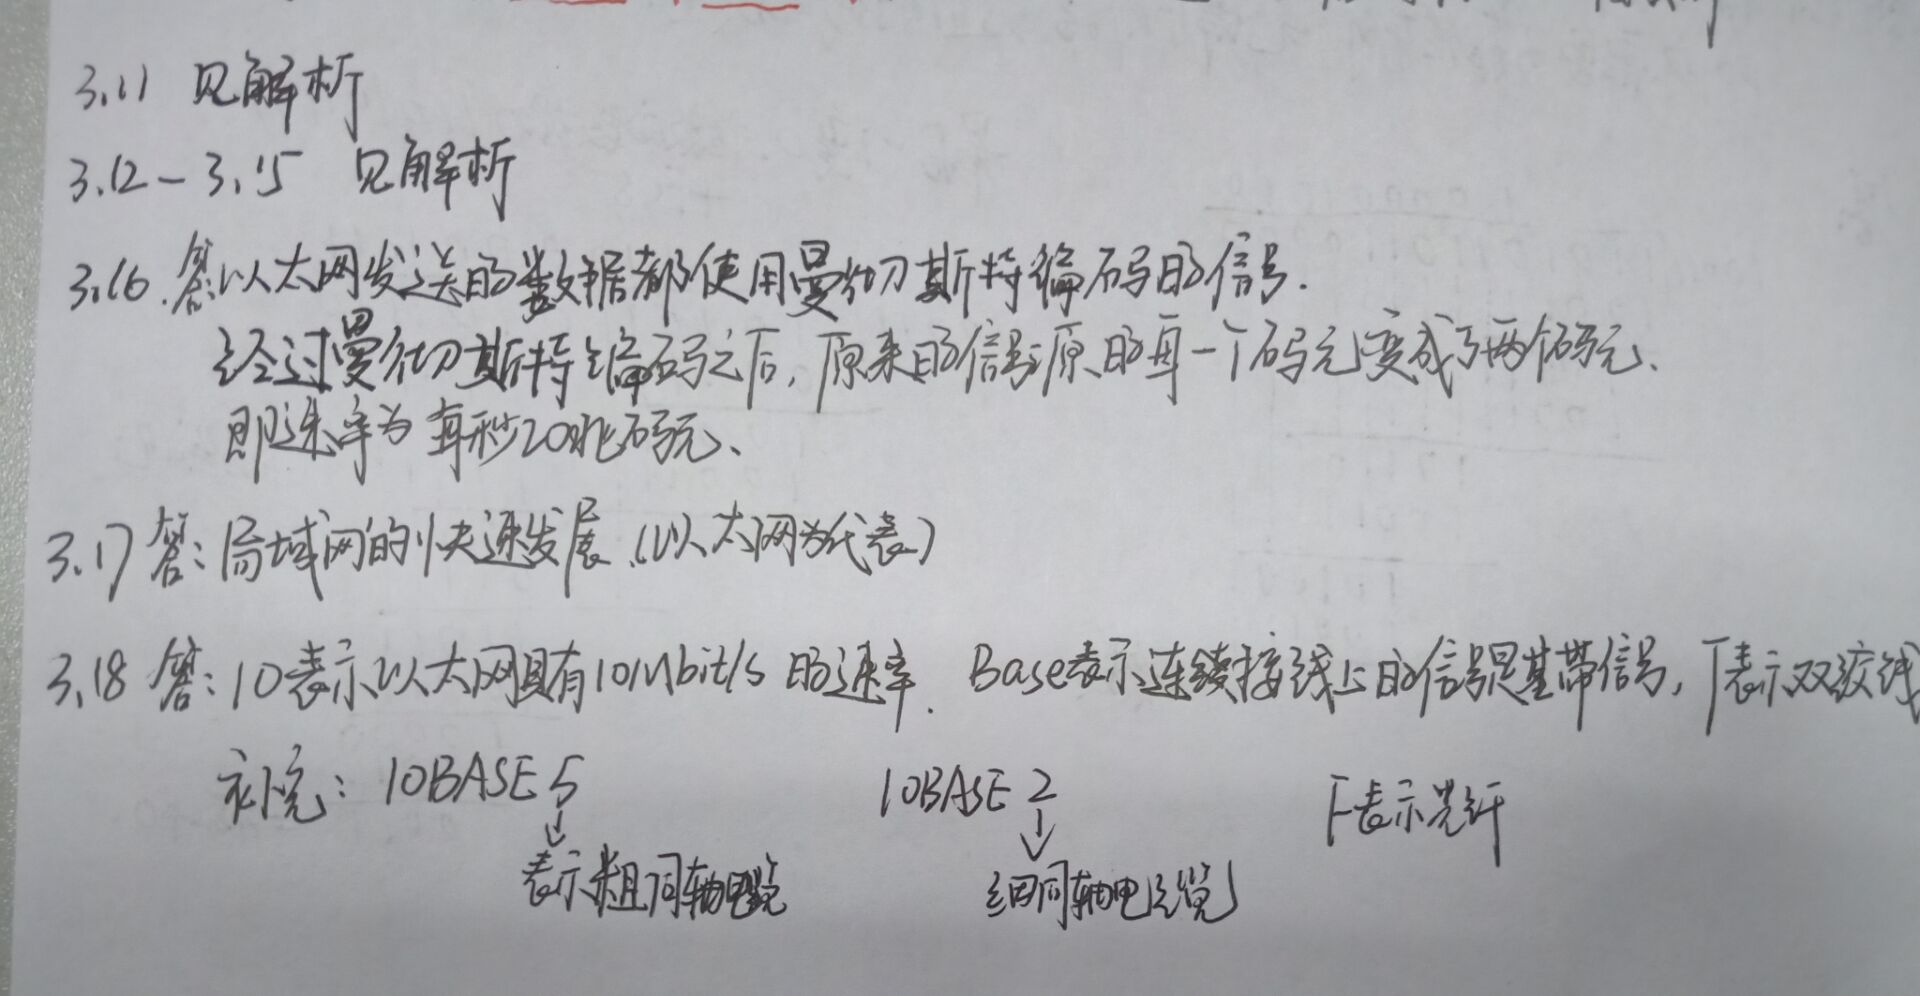 3.11 见解析
3.12-3.15 见解析
3.16.答:以太网发送的数据都使用曼彻斯特编码的信号.
经过曼彻斯特编码之后,原来的信号原的每一个码元变成了两个码元.
即速率为每秒20兆码元.
3.17 答:局域网的快速发展.(以太网为代表)
3.18 答:10表示以太网具有10Mbit/s的速率. Base表示连续接线上的信号是基带信号, T表示双绞线
补充:10BASE 5 10BASE 2 F表示光纤
表示粗同轴电缆 细同轴电缆